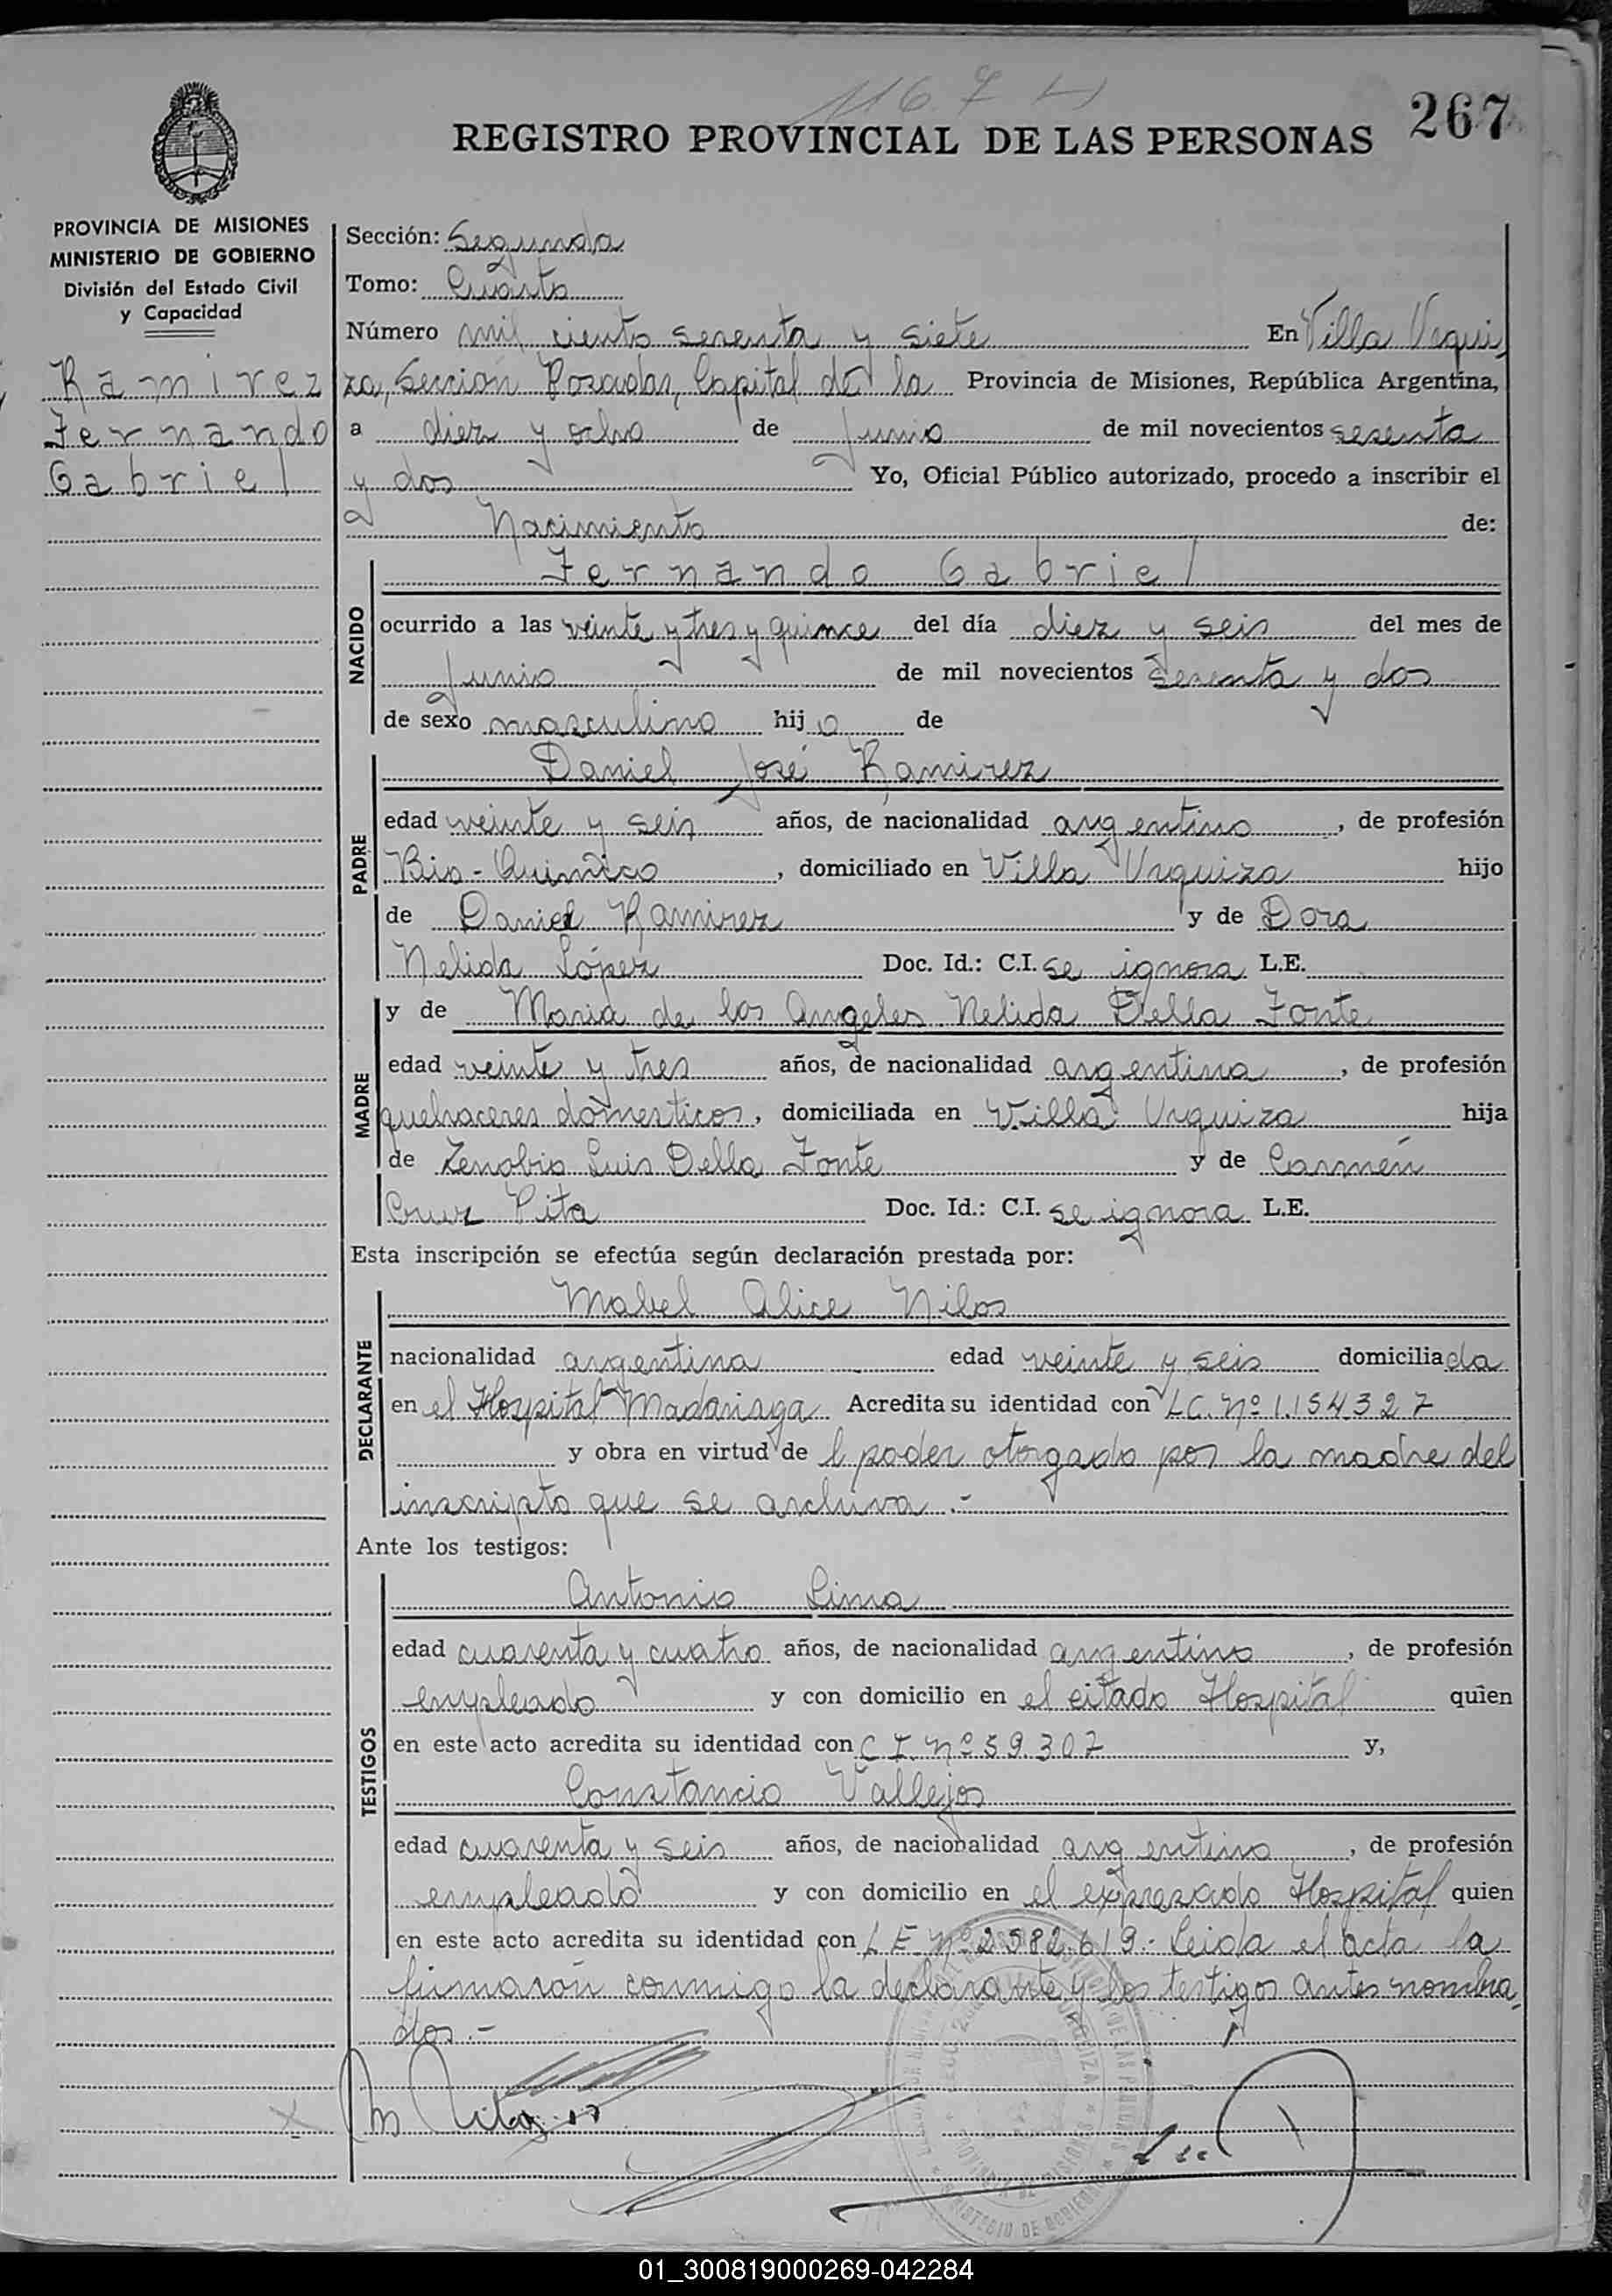 1167
267
REGISTRO PROVINCIAL DE LAS PERSONAS
PROVINCIA DE MISIONES
MINISTERIO DE GOBIERNO
División del Estado Civil
y Capacidad
Ramirez
Fernando
Gabriel
Sección: Segunda
Tomo: Cuarto
Número mil ciento sesenta y siete En Villa Urqui,
za, Sección Posadas, Capital de la Provincia de Misiones, República Argentina,
a diez y ocho de Junio de mil novecientos sesenta
y dos Yo, Oficial Público autorizado, procedo a inscribir el
Nacimiento de:
NACIDO
Fernando Gabriel
ocurrido a las veinte y tres y quince del día diez y seis del mes de
Junio de mil novecientos sesenta y dos
de sexo masculino hijo de
PADRE
Daniel José Ramirez
edad veinte y seis años, de nacionalidad argentino, de profesión
Bio-Quimico, domiciliado en Villa Urquiza hijo
de Daniel Ramirez y de Dora
Nelida López Doc. Id.: C.I. se ignora L.E.
MADRE
y de Maria de los Angeles Nelida Della Fonte
edad veinte y tres años, de nacionalidad argentina, de profesión
quehaceres domesticos, domiciliada en Villa Urquiza hija
de Zenobio Luis Della Fonte y de Carmén
Cruz Pita Doc. Id.: C.I. se ignora L.E.
Esta inscripción se efectúa según declaración prestada por:
DECLARANTE
Mabel Alice Nilos
nacionalidad argentina edad veinte y seis domiciliada
en el Hospital Madariaga Acredita su identidad con LC. Nº 1.154.327
y obra en virtud de l poder otorgado por la madre del
inscripto que se archiva.-
Ante los testigos:
TESTIGOS
Antonio Lima
edad cuarenta y cuatro años, de nacionalidad argentino, de profesión
empleado y con domicilio en el citado Hospital quien
en este acto acredita su identidad con C.I. Nº 59.307 y,
Constancio Vallejos
edad cuarenta y seis años, de nacionalidad argentino, de profesión
empleado y con domicilio en el expresado Hospital quien
en este acto acredita su identidad con L E Nº 2582.619.- Leida el acta la
firmarón conmigo la declarante y los testigos antes nombra,
dos.-
01_300819000269-042284